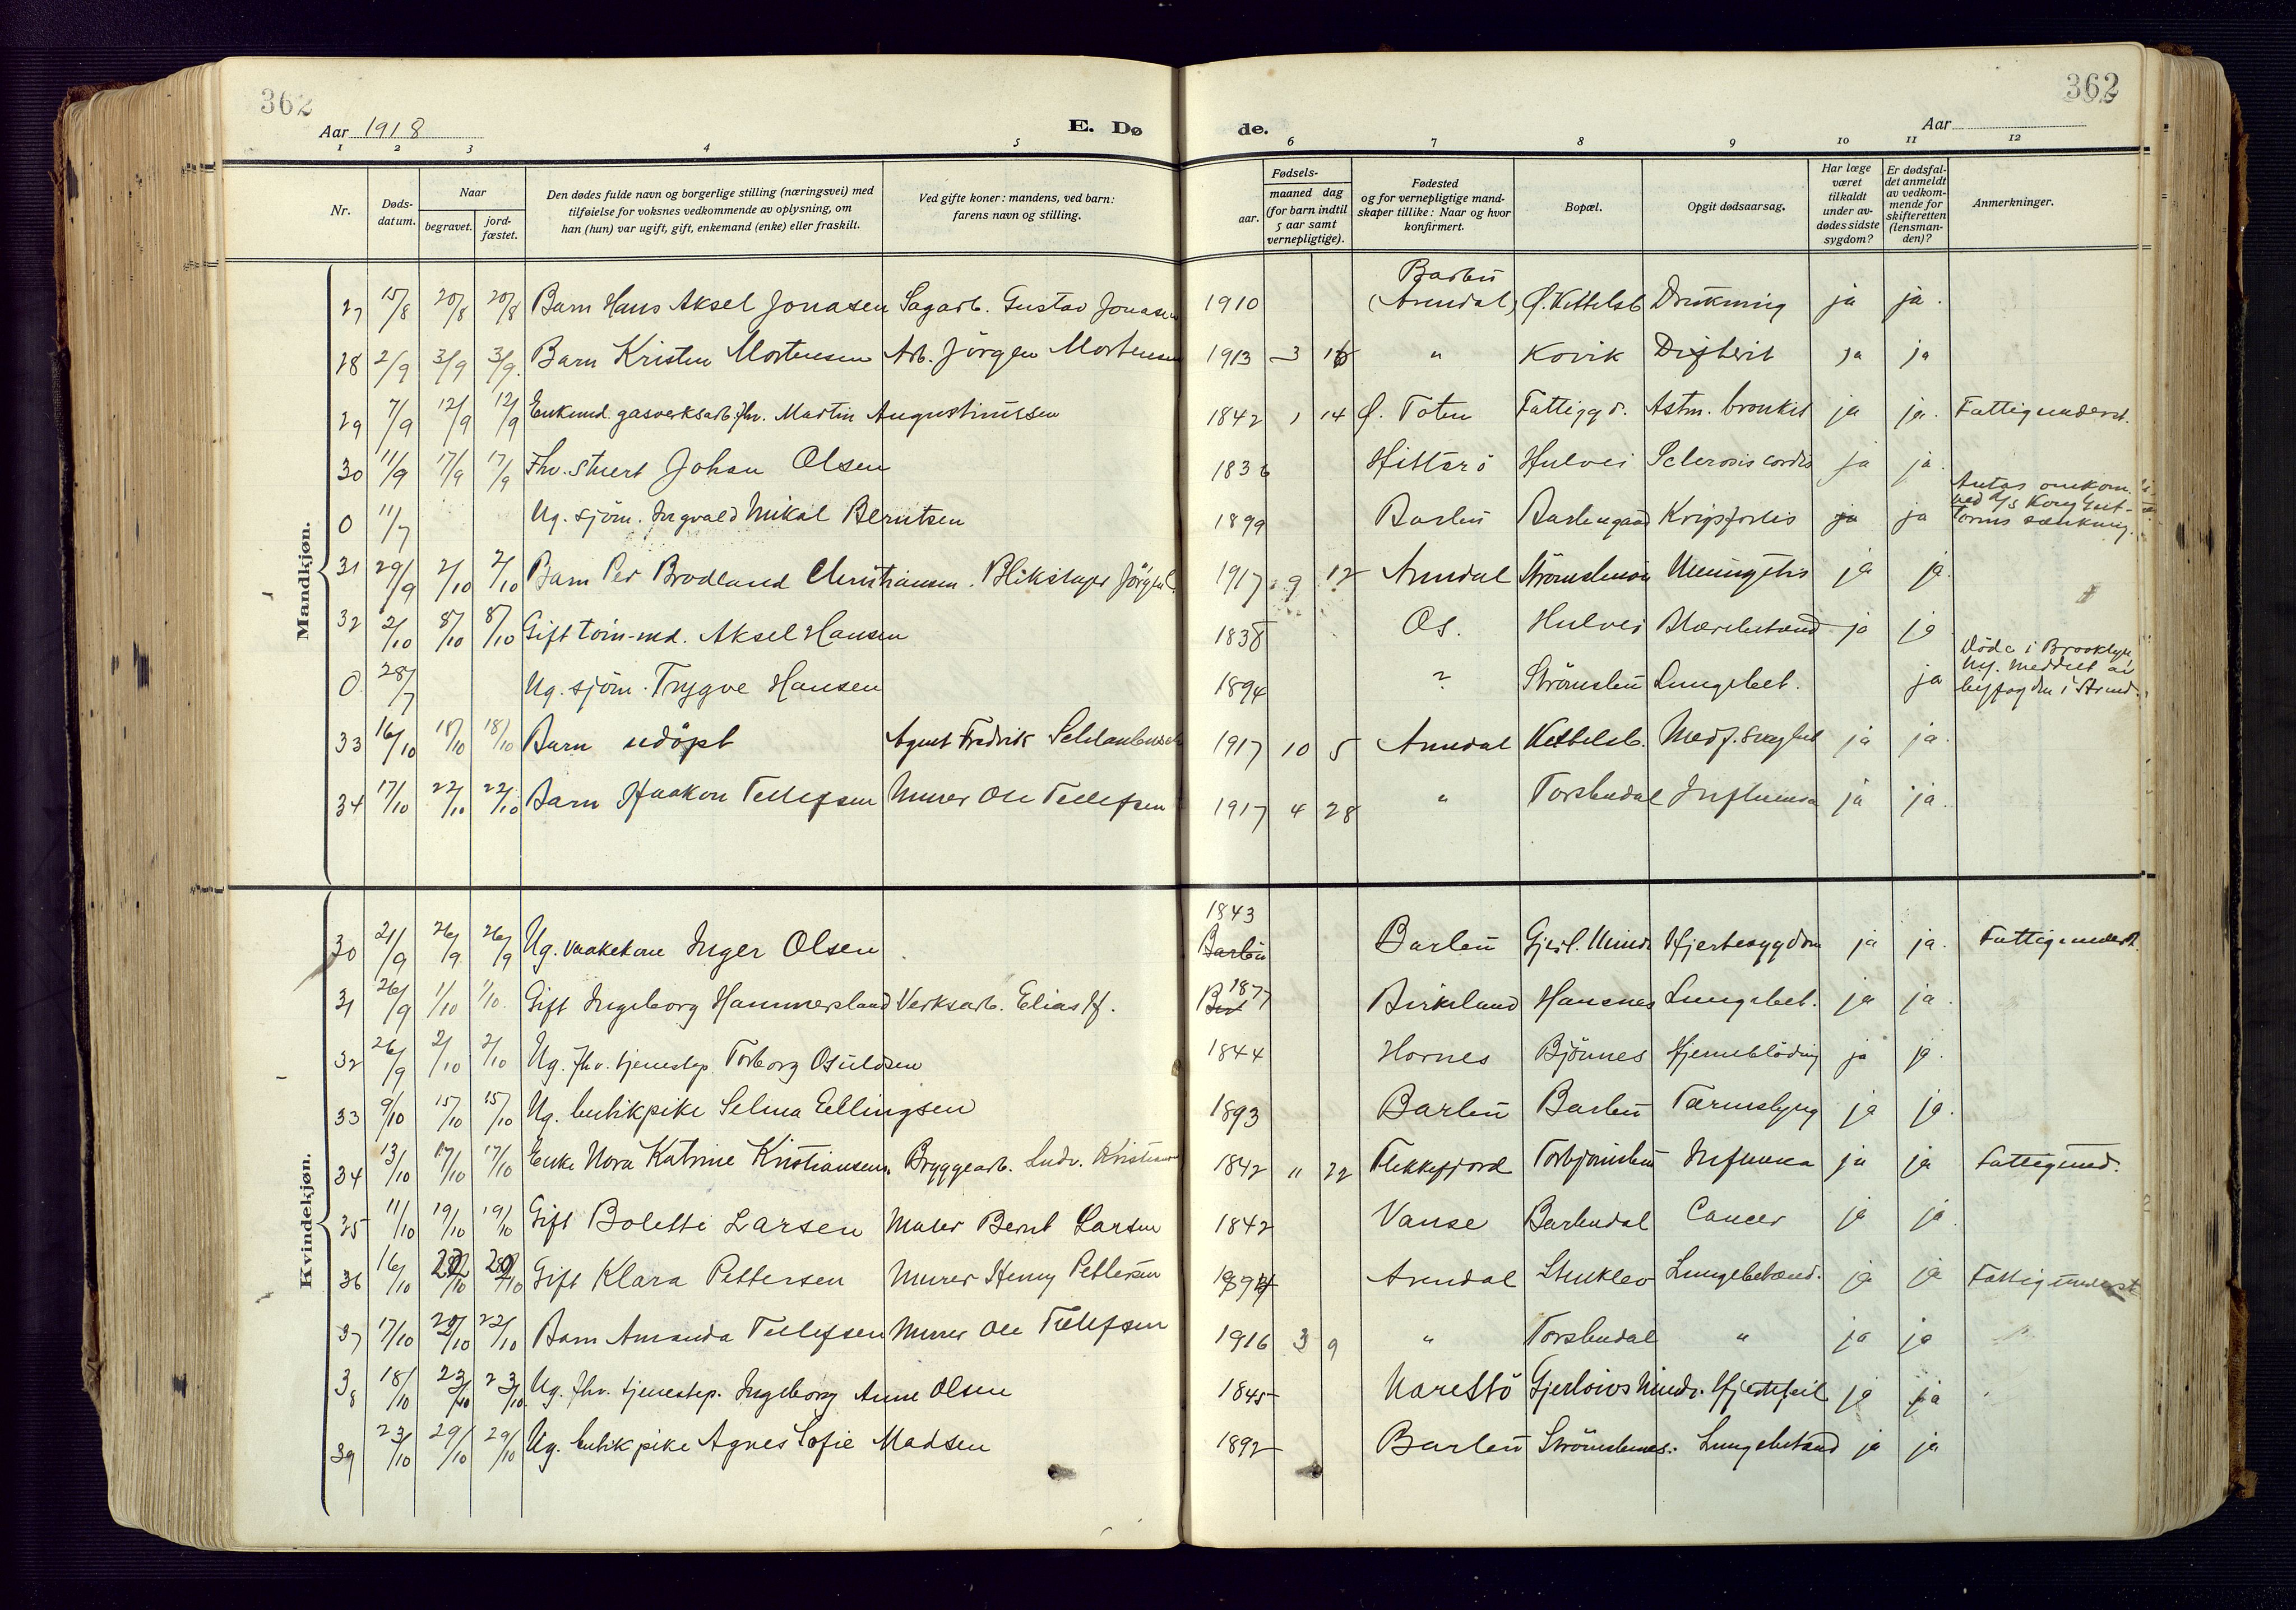 362
362
Aar 1918
E. Dø
de.
Aar
1 2 3 4 5 6 7 8 9 10 11 12
Nr.
Døds-
datum.
Naar
begravet.
jord-
fæstet.
Den dødes fulde navn og borgerlige stilling (næringsvei) med
tilføielse for voksnes vedkommende av oplysning, om
han (hun) var ugift, gift, enkemand (enke) eller fraskilt.
Ved gifte koner: mandens, ved barn:
farens navn og stilling.
aar.
Fødsels-
maaned dag
(for barn indtil
5 aar samt
vernepligtige).
Fødested
og for vernepligtige mand-
skaper tillike: Naar og hvor
konfirmert.
Bopæl.
Opgit dødsaarsag.
Har læge
været
tilkaldt
under av-
dødes sidste
sygdom?
Er dødsfal-
det anmeldt
av vedkom-
mende for
skifteretten
(lensman-
den)?
Anmerkninger.
Mandkjøn.
Barbu
27 15/8 20/8 20/8 Barn Hans Aksel Jonasen Sagarb. Gustav Jonasen 1910 (Arendal) Ø. Kittelsb Drukning ja ja.
28 2/9 3/9 3/9. Barn Kristen Mortensen Arb. Jörgen Mortensen 1913 3 " Kovik Difterit ja ja
29 7/9 12/9 12/9 Enkemd. gasverksarb. fhv. Martin Augustinussen 1842 1 14 Ø. Toten Fattiggd. Astm. bronkit ja ja. Fattigunderst.
30 11/9 17/9 17/9 Fhv. stuert Johan Olsen 1836 Hitterö Hulvei Sclerosis cordis ja ja.
0 11/7 Ug. sjöm. Ingvald Mikal Berntsen 1899 Barbu Barbugaard Krigsforlis ja ja
Antas omkom.
ved S/S Kong Gut-
torms sænkning.
31 29/9 2/10 2/10 Barn Per Brodland Christiansen. Blikslager Jörgen 1917 9 12 Arendal Meningitis ja ja.
32 2/10 8/10 8/10 Gift Aksel Hansen 1838 Os. Hulvei Blærebetænd ja ja
0 28/7 Ug. sjöm. Trygve Hansen 1894 ? Strömsbu Lungebet. ja
Döde i Brooklyn
Ny. Meddelt av
byfogden i Arend.
33 16/10 18/10 18/10 Barn udöpt Agent Fredrik 1917 10 5 Arendal Kittelsb. Medf. svaghet ja ja.
34 17/10 22/10 22/10 Barn Haakon Tellefsen Murer Ole Tellefsen 1917 4 28 " Torsbudal Influensa ja ja.
Kvindekjøn.
1843
30 21/9 26/9 26/9 Ug. vaakekone Inger Olsen Barbu Barbu Gjerl. Minde Hjertesygdom ja ja. Fattigunderst.
31 26/9 1/10 1/10. Gift Ingeborg Hammersland Verksarb. Elias H. 1877 Birkeland Hansnes Lungebet. ja ja.
32 26/9 2/10 2/10 Ug. fhv. tjenestep. Torborg Osuldsen 1844 Hornes Björnes Hjerneblödning ja ja.
33 9/10 15/10 15/10 Ug. butikpike Selma Ellingsen 1893 Barbu Barbu ja ja.
34 13/10 17/10 17/10 Enke Nora Katrine Kristiansen. Bryggearb. Ludv. Kristiansen 1842 " 22 Flekkefjord Torbjörnsbu Influensa ja ja Fattigund.
35 11/10 19/10 19/10 Gift Bolette Larsen Maler Bernt Larsen 1842 Vanse Barbudal Cancer ja ja.
36 16/10 Gift Klara Pettersen Murer Henny Pettersen Arendal Lungebetænd. ja ja Fattigunderst
37 17/10 22/10 22/10 Barn Amanda Tellefsen Murer Ole Tellefsen 1916 3 9 " Torsbudal " ja ja
38 18/10 23/10 23/10 Ug. fhv. tjenestep. Ingeborg Anne Olsen 1845 Narestö Gjerlöws Minde. Hjertefeil ja ja
39 23/10 29/10 29/10 Ug. butikpike Agnes Sofie Madsen 1892 Barbu Strömsbunes. Lungebetænd ja ja